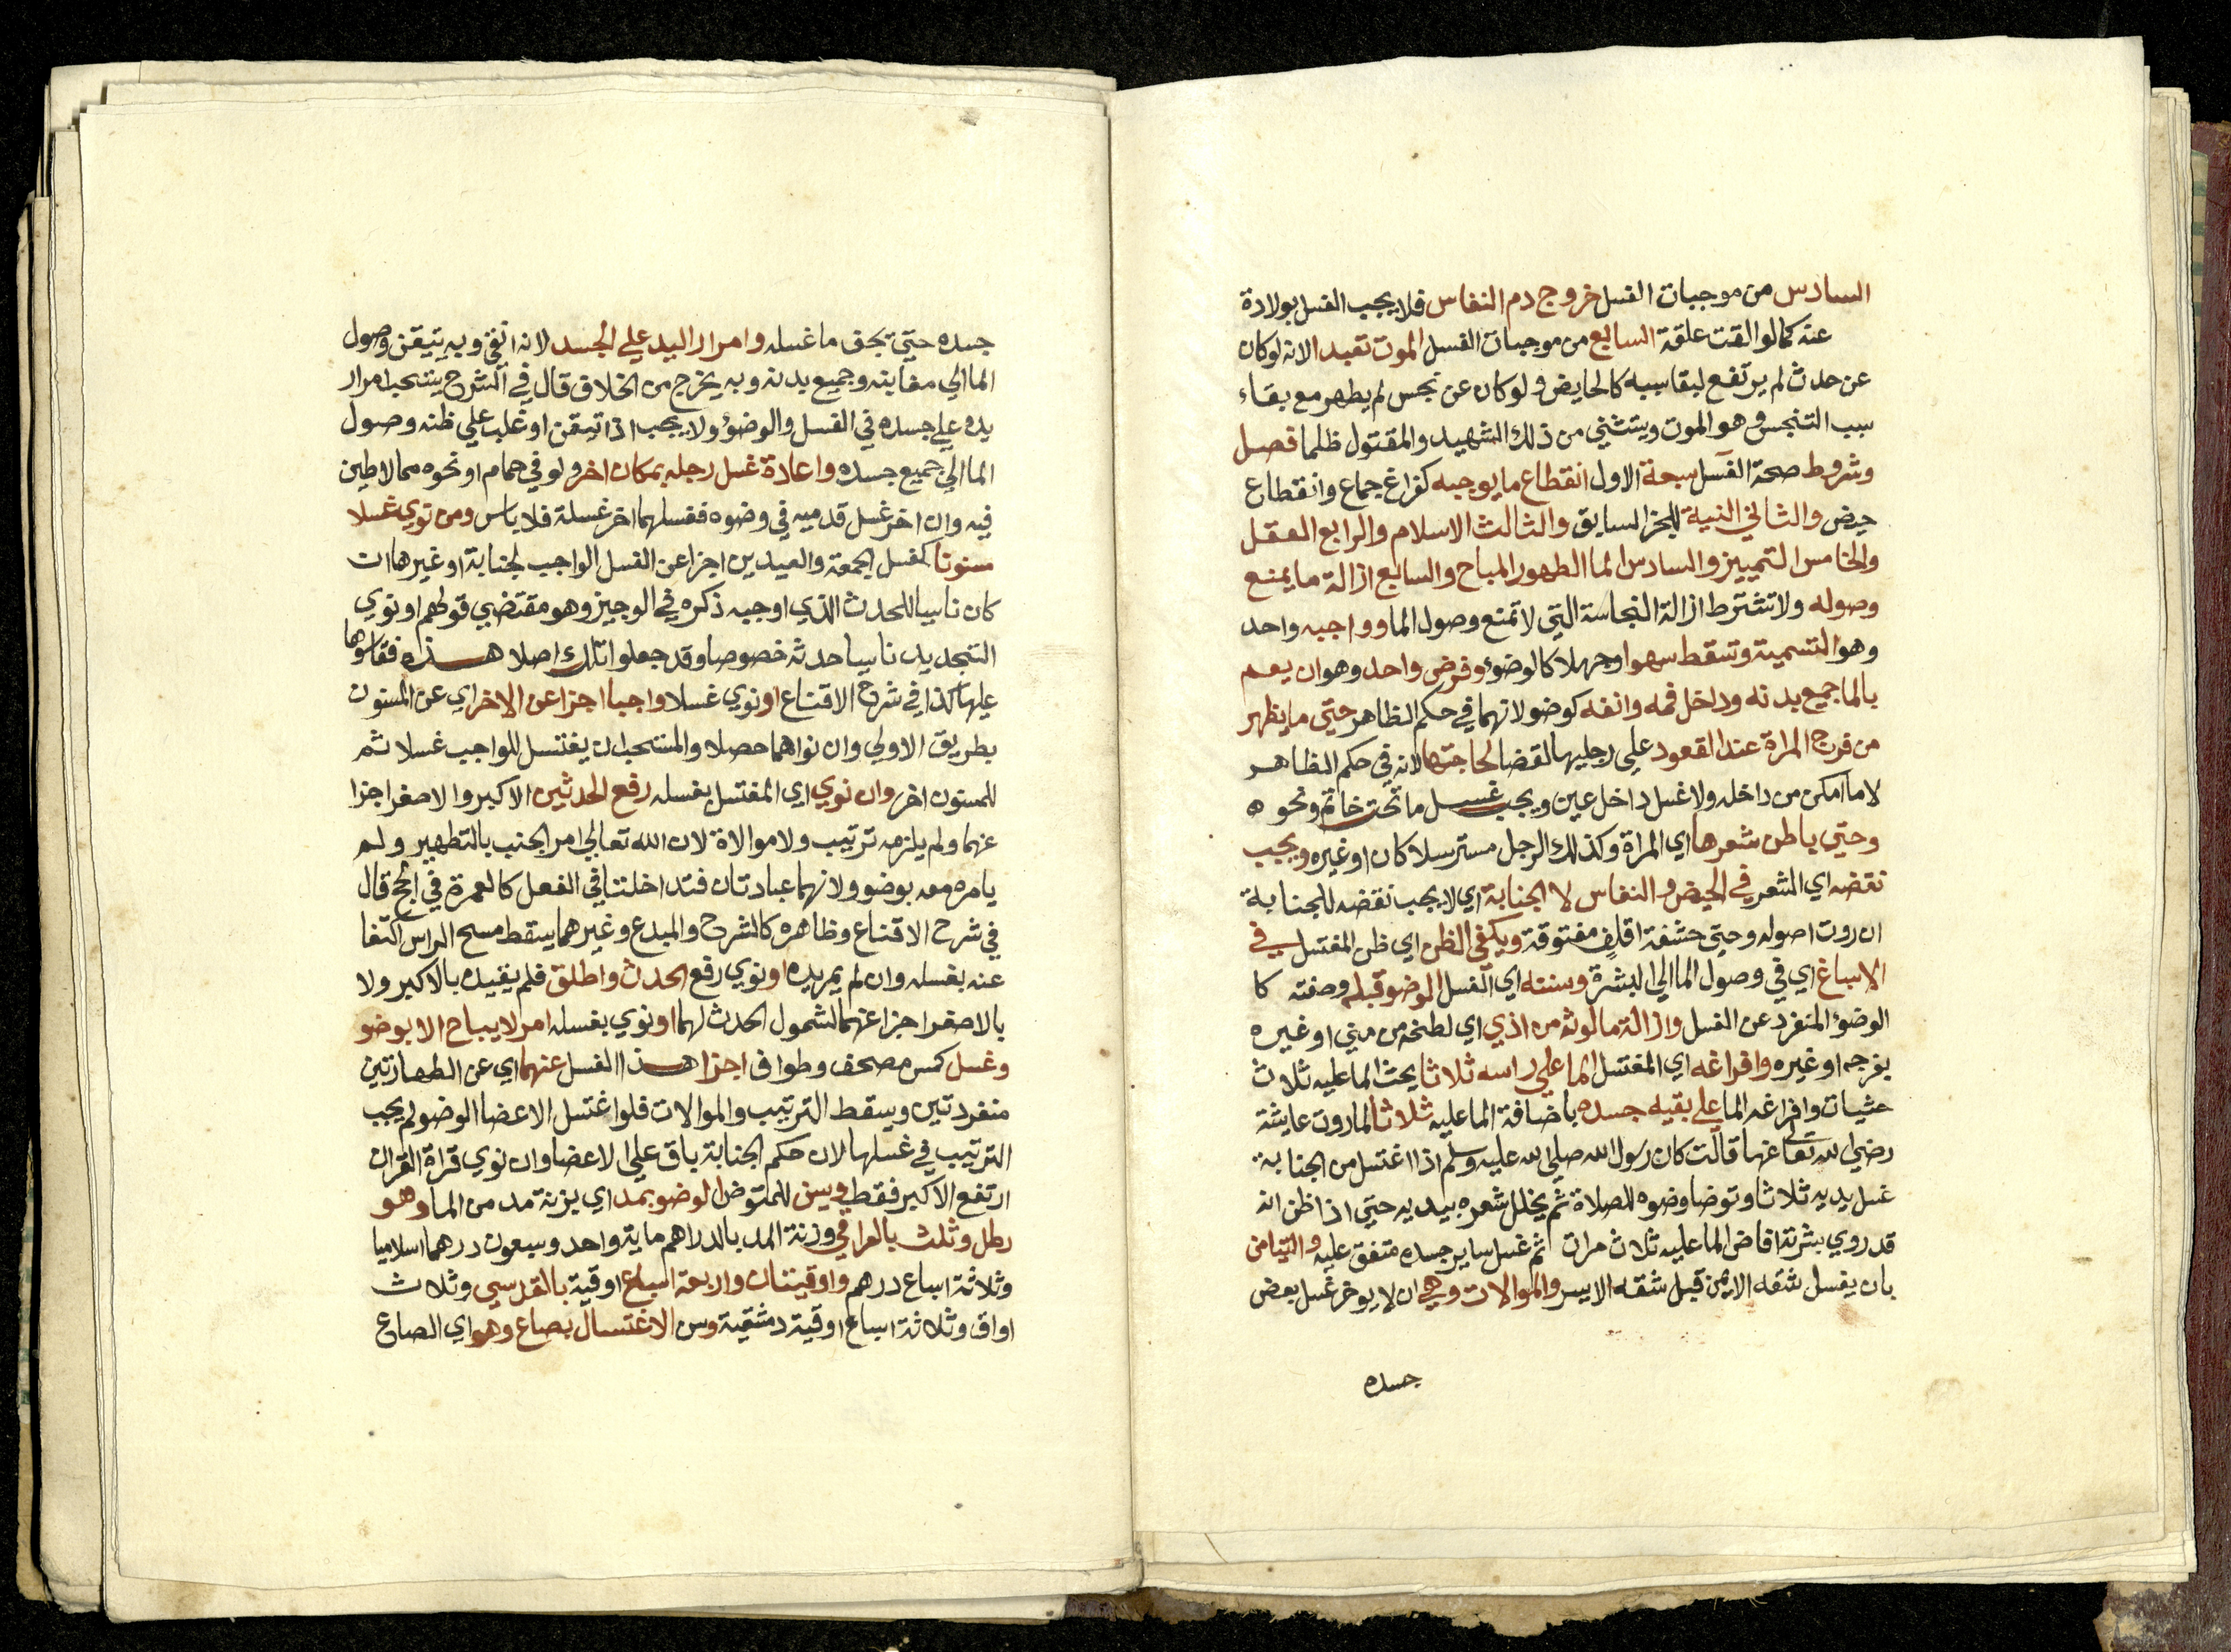 السادس من موجبات الغسل خروج دم النفاس فلا يجب الغسل بولادة
عنه كما لو القت علقة السابع من موجبات الغسل الموت تعبدا لانه لو كان
عن حدث لم يرتفع لبقا سببه كالحايض ولو كان عن نجس لم يطهر مع بقاء
سبب التنجس وهو الموت ويستثني من ذلك الشهيد والمقتول ظلما فصل
وشروط صحة الغسل سبعة الاول انقطاع ما يوجبه كفراغ جماع وانقطاع
حيض والثاني النية للخبر السابق والثالث الاسلام والرابع العقل
والخامس التمييز والسادس الما الطهور المباح والسابع ازالة ما يمنع
وصوله ولا تشترط ازالة النجاسة التي لا تمنع وصول الما وواجبه واحد
وهو التسمية وتسقط سهوا وجهلا كالوضوء وفرض واحد وهو ان يعم
بالما جميع بدنه وداخل فمه وانفه كوضو لانهما في حكم الظاهر حتي ما يظهر
من فرج المراة عند القعود علي رجليها لقضا لحاجتها لانه في حكم الظاهر
لا ما امكن من داخله ولا غسل داخل عين ويجب غسل ما تحت خاتم ونحوه
وحتي باطن شعرها اي المراة وكذلك الرجل مسترسلا كان او غيره ويجب
نقضه اي الشعر في الحيض والنفاس لا الجنابة اي لا يجب نقضه للجنابة
ان روت اصوله وحتي حشفة اقلف مفتوقة ويكفي الظن اي ظن المغتسل في
الاسباغ اي في وصول الما الي البشرة وسننه اي الغسل الوضو قبله وصفته كا
الوضوء المنفرد عن الغسل وازالة ما لوثه من اذي اي لطخه من مني او غيره
بفرجه او غيره وافراغه اي المغتسل الما علي راسه ثلاثا يحث الما عليه ثلاث
حثيات وافراغه الما علي بقيه جسده باضافة الما عليه ثلاثا لما روت عايشة
رضي الله تعالى عنها قالت كان رسول الله صلي الله عليه وسلم اذا اغتسل من الجنابة
غسل يديه ثلاثا وتوضا وضوه للصلاة ثم يخلل شعره بيديه حتي اذا ظن انه
قد روي بشرته افاض الما عليه ثلاث مرات ثم غسل ساير جسده متفق عليه والتيامن
بان يغسل شقه الايمن قبل شقه الايسر والموالات وهي ان لا يوخر غسل بعض
جسده
جسده حتي تجف ما غسله وامرار اليد علي الجسد لانه انقي وبه يتيقن وصول
الما الي مغابنه وجميع بدنه وبه يخرج من الخلاف قال في الشرح يستحب امرار
يده علي جسده في الغسل والوضوء ولا يجب اذا تيقن او غلب علي ظنه وصول
الما الي جميع جسده واعادة غسل رجله بمكان اخر ولو في حمام او نحوه مما لا طين
فيه وان اخر غسل قدميه في وضوه فغسلهما اخر غسلة فلا باس ومن نوي غسلا
مسنونا كغسل الجمعة والعيدين اجزا عن الغسل الواجب لجنابة او غيرها ان
كان ناسيا للحدث الذي اوجبه ذكره في الوجيز وهو مقتضي قولهم او نوي
التجديد ناسيا حدثه خصوصا وقد جعلوا تلك اصلا هذه فقاسوها
عليها كذا في شرح الاقناع او نوي غسلا واجبا اجزا عن الاخر اي عن المسنون
بطريق الاولي وان نواهما حصلا والمستحب ان يغتسل للواجب غسلا ثم
للمسنون اخر وان نوي اي المغتسل بغسله رفع الحدثين الاكبر والاصغر اجزا
عنهما ولم يلزمه ترتيب ولا موالاة لان الله تعالي امر الجنب بالتطهير ولم
يامره معه بوضو ولانهما عبادتان فتداخلتا في الفعل كالعمرة في الحج قال
في شرح الاقناع وظاهره كالشرح والمبدع وغيرهما يسقط مسح الراس اكتفا
عنه بغسله وان لم يمر يده او نوي رفع الحدث واطلق فلم يقيده بالاكبر ولا
بالاصغر اجزا عنهما لشمول الحدث لهما او نوي بغسله امر لا يباح الا بوضو
وغسل كمس مصحف وطواف اجزا هذا الغسل عنهما اي عن الطهارتين
منفردتين ويسقط الترتيب والموالات فلو اغتسل الا عضا الوضو لم يجب
الترتيب في غسلها لان حكم الجنابة باق علي الاعضا وان نوي قراة القران
ارتفع الاكبر فقط ويسن للمتوض الوضو بمد اي بزنة مد من الما وهو
رطل وثلث بالعراقي وزنة المد بالدراهم ماية واحد وسبعون درهما اسلاميا
وثلاثة اسباع درهم واوقيتان واربعة اسباع اوقية بالقدسي وثلاث
اواق وثلاثة اسباع اوقية دمشقية وسن الاغتسال بصاع وهو اي الصاع